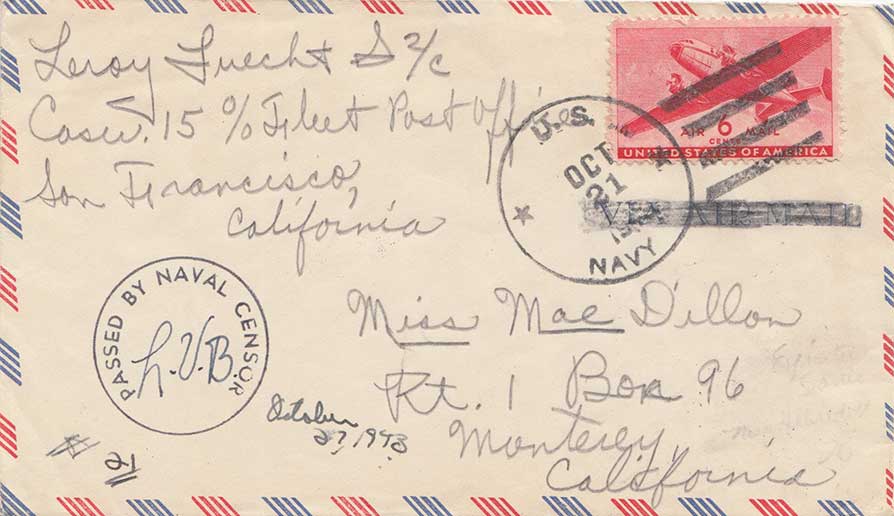 Leroy Fuecht S 2/c
Casu. 15 % Fleet Post Off
San Francisco,
California
AIR 6 MAIL
CENTS
UNITED STATES OF AMERICA
U.S.
OCT
21
NAVY
VIA AIR MAIL
PASSED BY NAVAL CENSOR
L.V.B.
Miss Mae Dillon
Rt. 1 Box 96
Monterey,
California
October
27, 1943